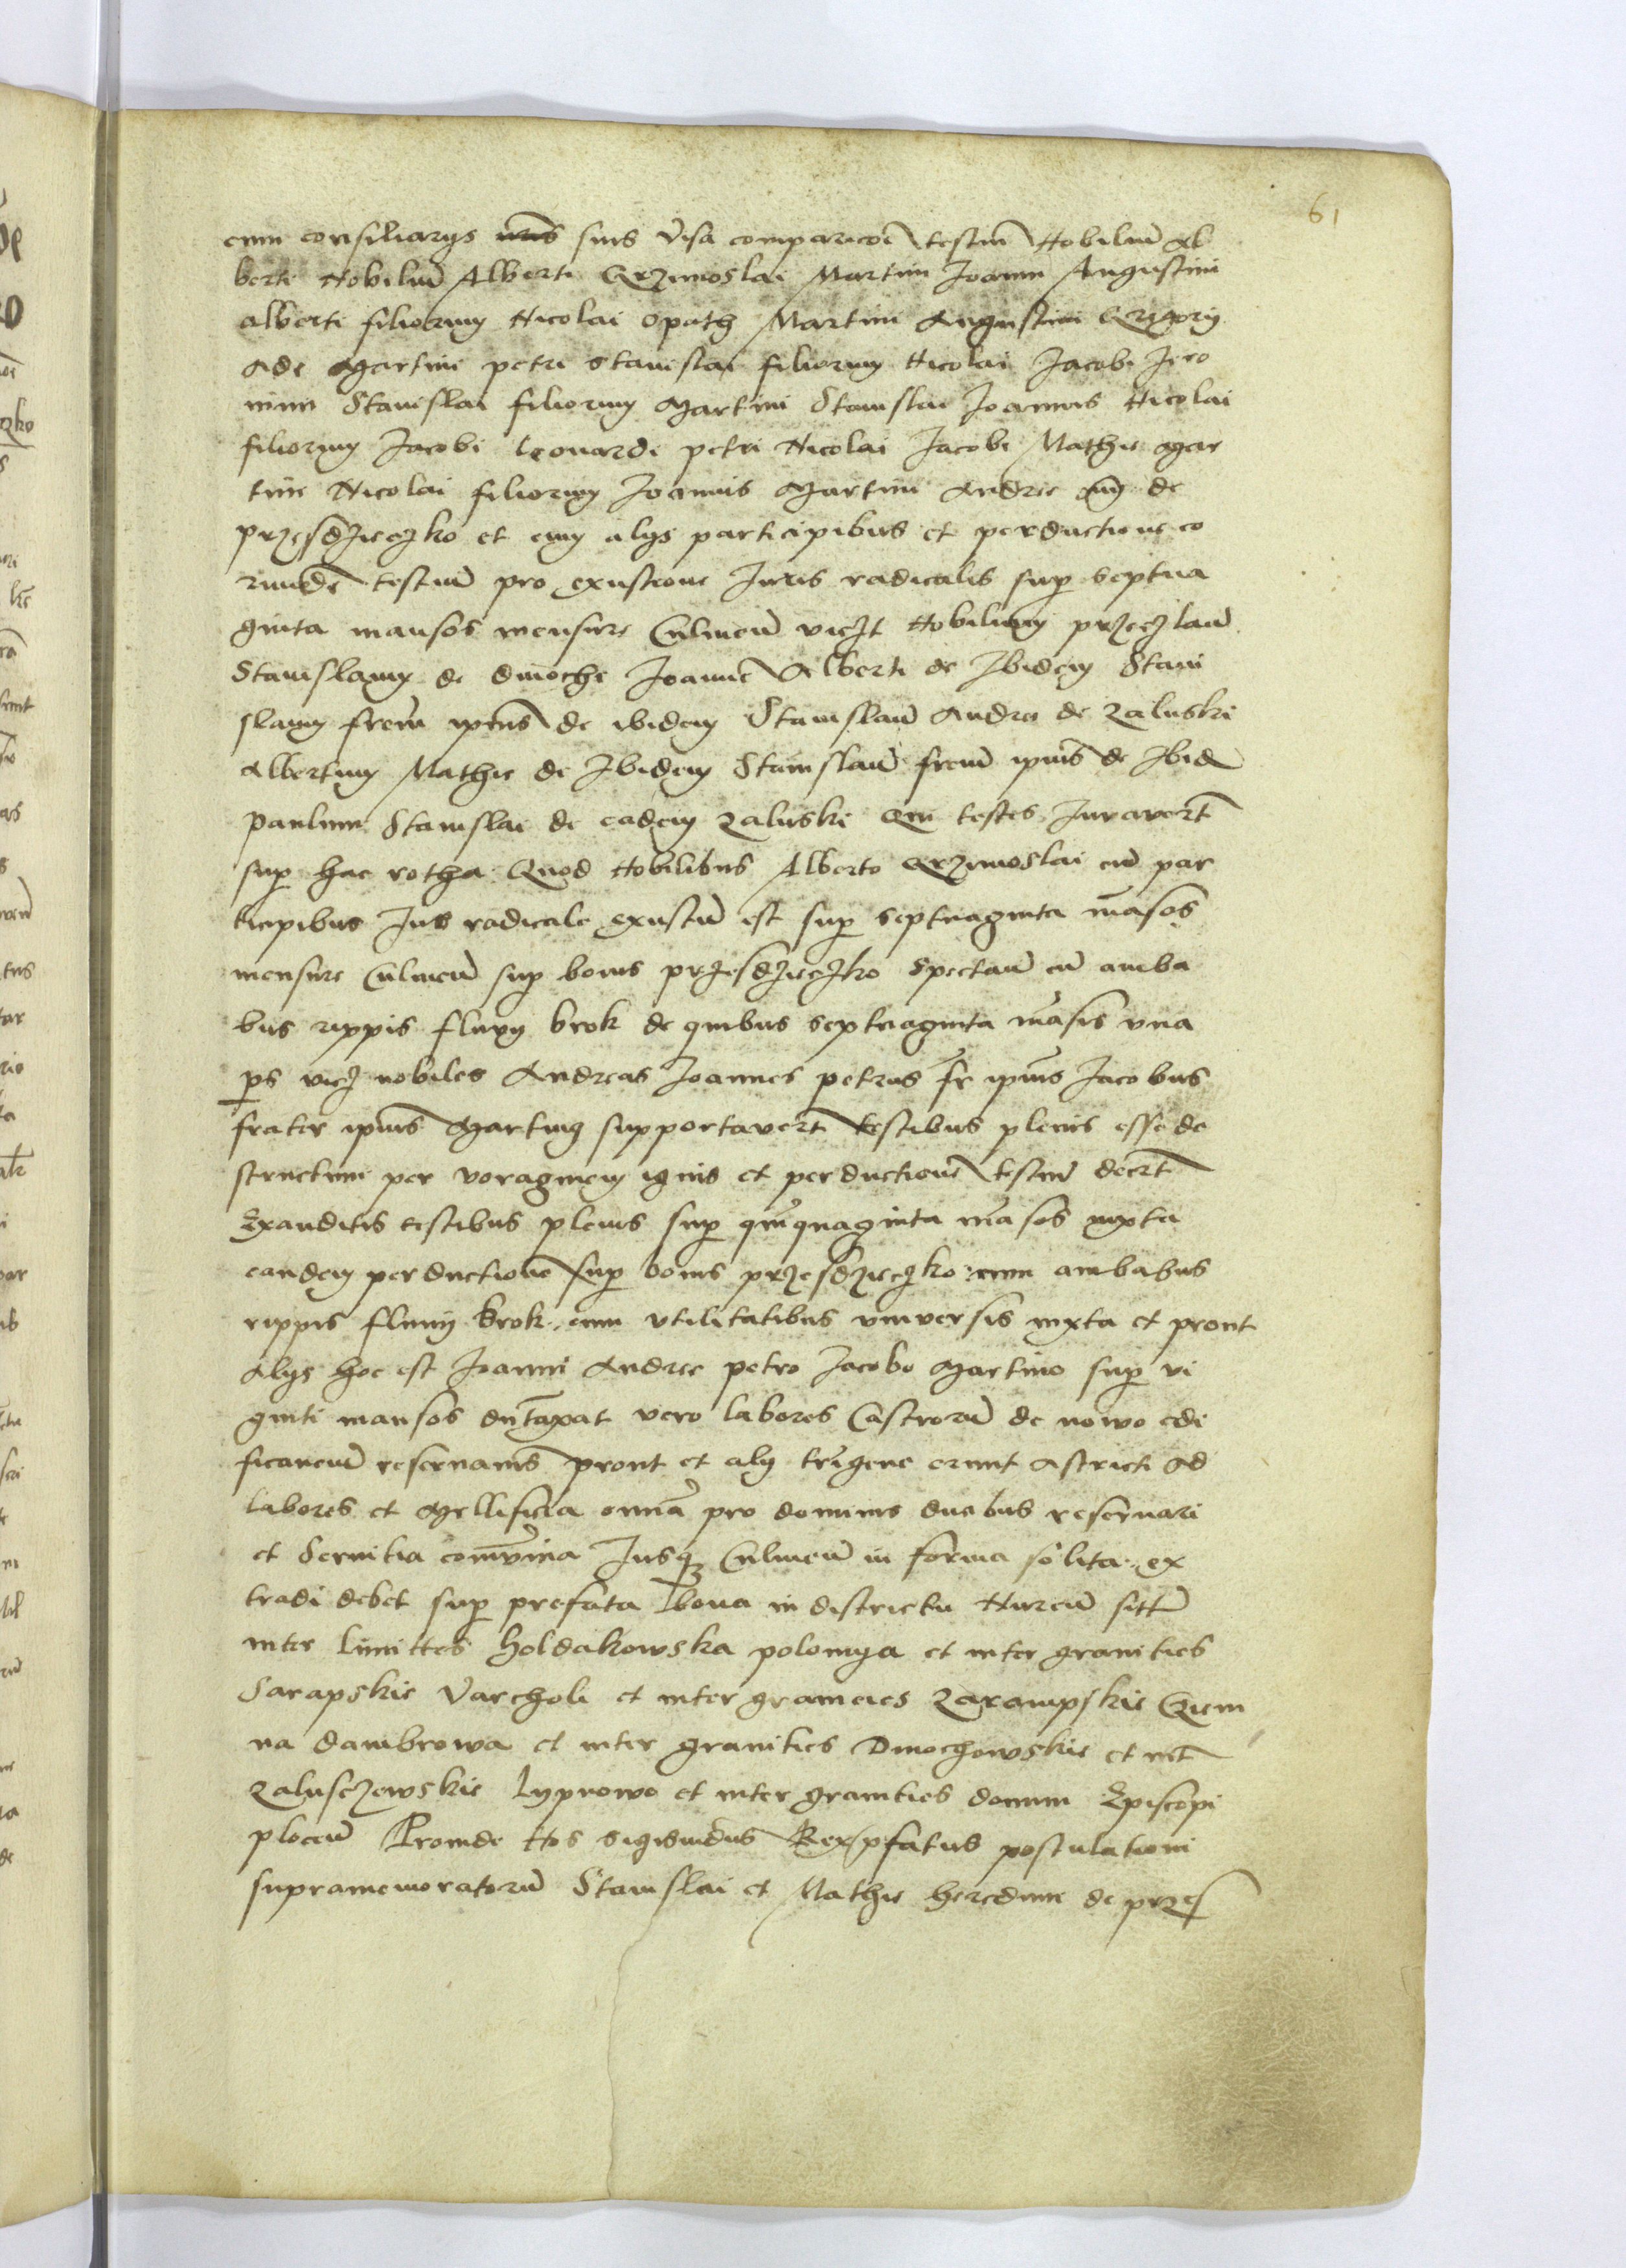 61
cum consiliarys suis visa comparicõe testium Nobilium Al
berti Nobilium Alberti Grzimoslai Martini Joanni Augustini
alberti filiorum Nicolai opath Martini Augustini Gregorij
Ade Martini petri Stanislai filiorum Nicolai Jacobi Jero
nimi Stanislai filiorum Martini Stanislai Joannis Nicolai
filiorum Jacobi leonardi petri Nicolai Jacobi Mathie Mar
tini Nicolai filiorum Joannis Martini Andree de
przesdzieczko et cum alys participibus et perductione eo
rundẽ testium pro exustione Juris radicalis sup septua
ginta mansos mensure Culmeñ viczt Nobilium przeczlaũ
Stanislaum de dmoche Joannẽ Alberti de Ibidem Stani
slaum frem̃ ipius de ibidem Stanislaũ Andree de Zaluski
Albertum Mathie de Ibidem Stanislaũ frem̃ ipius de Ibid
paulum Stanislai de eadem Zaluski Qui testes Juravert̃
sup hac rotha Quod Nobilibus Alberto Grzimoslai cũ par
ticipibus Jus radicale exustũ est sup septuaginta mãsos
mensure Culmeñ sup bonis przesdzieczko spectañ cũ amba
bus rippis fluvij brok de quibus septuaginta mãsis una
ps vicz nobiles Andreas Joannes petrus fr ipius Jacobus
frater ipius Martinus supportavert̃ testibus plenis esse de
structum per voraginem ignis et perductionẽ testiũ decrt̃
Exauditis testibus plenis sup quĩquaginta mãsos iuxta
eandem perductionẽ sup bonis przesdzieczko cum ambabus
rippis fluuij brok cum utilitatibus universis iuxta et prout
alys hoc est Joanni Andree petro Jacobo Martino sup vi
ginti mansos dũtaxat vero labores Castrorũ de novo edi
ficaneñ reseruamus prout et alij erunt astricti ad
labores et Mellificia omnia pro dominis duabus reseruari
et seruitia Jusq Culmeñ in forma solita ex
tradi debet sup prefata bona in districtu Nureñ sitt̃
inter limittes holdakowska polomya et inter granities
Sarapskie Varcholi et inter granicies Zarampskie Gzem
na dambrowa et inter granities Dmochowskie et int̃
Zalusczewskie lypnowo et inter granities domini Episcopi
ploceñ Proinde Nos Sigismũdus Rex pfatus postulationi
supramemoratorũ Stanislai et Mathie heredum de przes